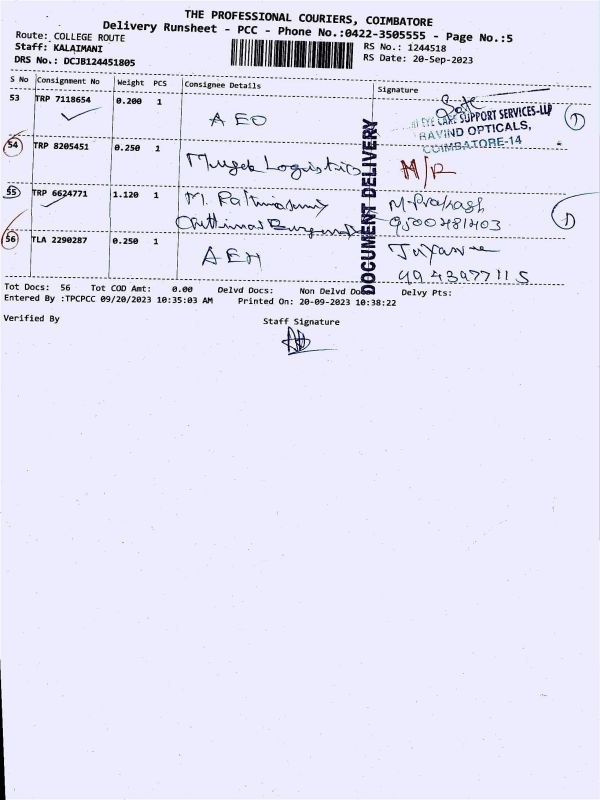 THE PROFESSIONAL COURIERS, COIMBATORE
Delivery Runsheet - PCC - Phone No.:0422-3505555 - Page No.:5
Route: COLLEGE ROUTE
Staff: KALAIMANI
DRS No.: DCJB124451805
RS No.: 1244518
RS Date: 20-Sep-2023
S No Consignment No Weight PCS Consignee Details Signature
53 TRP 7118654 0.200 1
AEO
EYE CARE SUPPORT SERVICES-LLP
RAVIND OPTICALS,
COIMBATORE-14
54 TRP 8205451 0.250 1
Logistics N/R
55 TRP 6624771 1.120 1 M.
M. Prakash
56 TLA 2290287 0.250 1
AEH
DOCUMENT DELIVERY
Tot Docs: 56 Tot COD Amt: 0.00 Delvd Docs: Non Delvd Do Delvy Pts:
Entered By :TPCPCC 09/20/2023 10:35:03 AM Printed On: 20-09-2023 10:38:22
Verified By Staff Signature